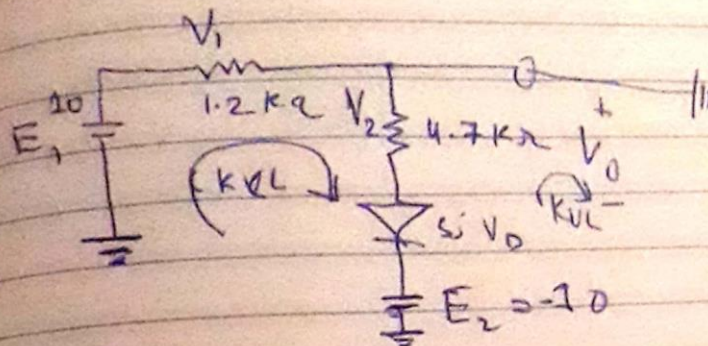 V₁
10
E₁
1.2 KΩ
V₂
4.7KΩ
+
V₀
-
KVL
KVL
Si V_D
E₂ = -10